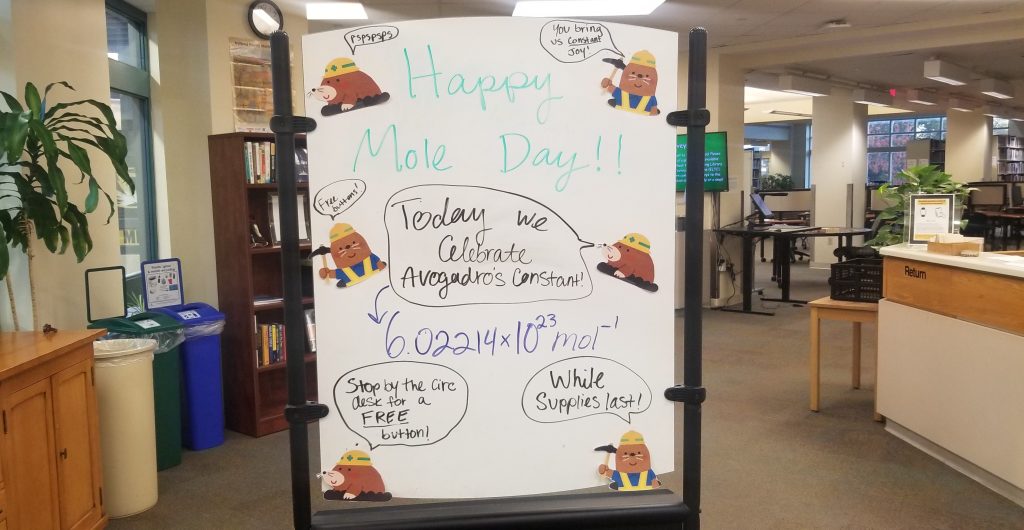 pspspsps
You bring
us constant
joy!
Happy
Mole Day!!
Free
buttons!
Today we
Celebrate
Avogadro's Constant!
6.02214×10²³ mol⁻¹
Stop by the Circ
desk for a
FREE
button!
While
Supplies last!
Return